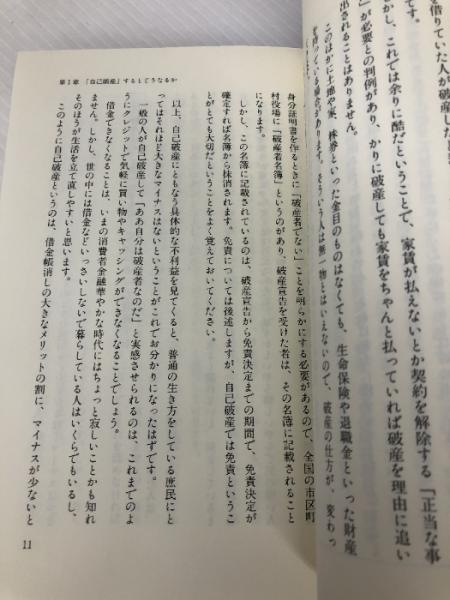 を借りていた人が破産し
です。
しかし、これでは余りに酷だということで、家賃が払えないとか契約を解除する「正当な事
」が必要との判例があり、かりに破産しても家賃をちゃんと払っていれば破産を理由に追い
出されることはありません。
このほかに土地や家、株券といった金目のものはなくても、生命保険や退職金といった財産
を持っている場合があります。そういう人は無一物とはいえないので、破産の仕方が、変わっ
第1章 「自己破産」するとどうなるか
身分証明書を作るときに「破産者でない」ことを明らかにする必要があるので、全国の市区町
村役場に「破産者名簿」というのがあり、破産宣告を受けた者は、その名簿に記載されること
になります。
しかし、この名簿に記載されているのは、破産宣告から免責決定までの期間で、免責決定が
確定すれば名簿から抹消されます。免責については後述しますが、自己破産では免責というこ
とがとても大切だということをよく覚えておいてください。
以上、自己破産にともなう具体的な不利益を見てくると、普通の生き方をしている庶民にと
ってはそれほど大きなマイナスはないということがこれでお分かりになったはずです。
一般の人が自己破産して「ああ自分は破産者なのだ」と実感させられるのは、これまでのよ
うにクレジットで気軽に買い物やキャッシングができなくなることでしょう。
借金できなくなることは、いまの消費者金融華やかな時代にはちょっと寂しいことかも知れ
ません。しかし、世の中には借金などいっさいしないで暮らしている人はいくらでもいるし、
そのほうが生活を立て直しやすいと思います。
このように自己破産というのは、借金帳消しの大きなメリットの割に、マイナスが少ないと
11